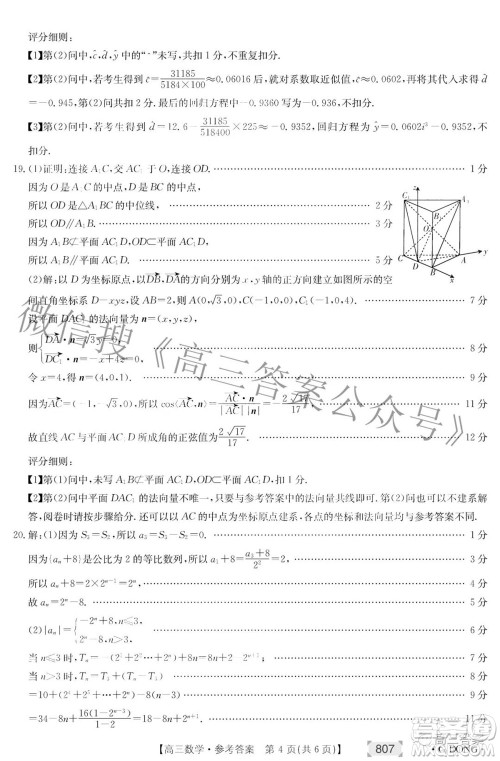 评分细则:
【1】第(2)问中,ĉ,d̂,ŷ 中的“^”未写,共扣 1 分,不重复扣分.
【2】第(2)问中,若考生得到 ĉ=31185/(5184×100)≈0.06016 后,就对系数取近似值,再将其代入求得 d̂
=-0.945,第(2)问共扣 2 分.最后的回归方程中-0.9360 写为-0.936,不扣分.
【3】第(2)问中,若考生得到 d̂=12.6-31185/518400×225≈-0.9352,回归方程为 ŷ=0.0602i³-0.9352,不
扣分.
19.(1)证明:连接 A₁C,交 AC₁ 于 O,连接 OD. 1 分
因为 O 是 A₁C 的中点,D 是 BC 的中点,
所以 OD 是△A₁BC 的中位线, 2 分
所以 OD∥A₁B. 3 分
因为 A₁B⊄平面 AC₁D,OD⊂平面 AC₁D,
所以 A₁B∥平面 AC₁D. 5 分
(2)解:以 D 为坐标原点,以DB,DA的方向分别为 x,y 轴的正方向建立如图所示的空
间直角坐标系 D-xyz,设 AB=2,则 A(0,√3,0),C(-1,0,0),C₁(-1,0,4). 7 分
设平面 DAC₁ 的法向量为 n=(x,y,z),
则{DA·n=√3y=0, DC₁·n=-x+4z=0, 8 分
令 x=4,得 n=(4,0,1). 9 分
因为AC=(-1,-√3,0),所以 cos⟨AC,n⟩=AC·n/(|AC||n|)=-2√17/17. 11 分
故直线 AC 与平面 AC₁D 所成角的正弦值为2√17/17. 12 分
评分细则:
【1】第(1)问中,未写 A₁B⊄平面 AC₁D,扣 1 分.
【2】第(2)问中平面 DAC₁ 的法向量不唯一,只要与参考答案中的法向量共线即可.第(2)问也可以不建系解
答,阅卷时请按步骤给分.还可以以 C 为坐标原点建系,各点的坐标和法向量均与参考答案不同.
20.解:(1)因为 S₂=S₃,所以 a₃=S₃-S₂=0. 1 分
因为{aₙ+8}是公比为 2 的等比数列,所以 a₁+8=(a₃+8)/2²=2, 3 分
所以 aₙ+8=2×2ⁿ⁻¹=2ⁿ, 4 分
故 aₙ=2ⁿ-8. 5 分
(2)|aₙ|={-2ⁿ+8,n≤3, 2ⁿ-8,n>3, 6 分
当 n≤3 时,Tₙ=-(2¹+2²+…+2ⁿ)+8n=8n+2-2ⁿ⁺¹; 7 分
当 n>3 时,Tₙ=T₃+(Tₙ-T₃) 8 分
=10+(2⁴+2⁵+…+2ⁿ)-8(n-3) 9 分
=34-8n+16(1-2ⁿ⁻³)/(1-2) 11 分
【高三数学·参考答案 第 4 页(共 6 页)】 807 ·G DONG·
C₁
B₁
A₁
O
C
D
B
A
x
y
z
微信搜《高三答案公众号》
高三答案